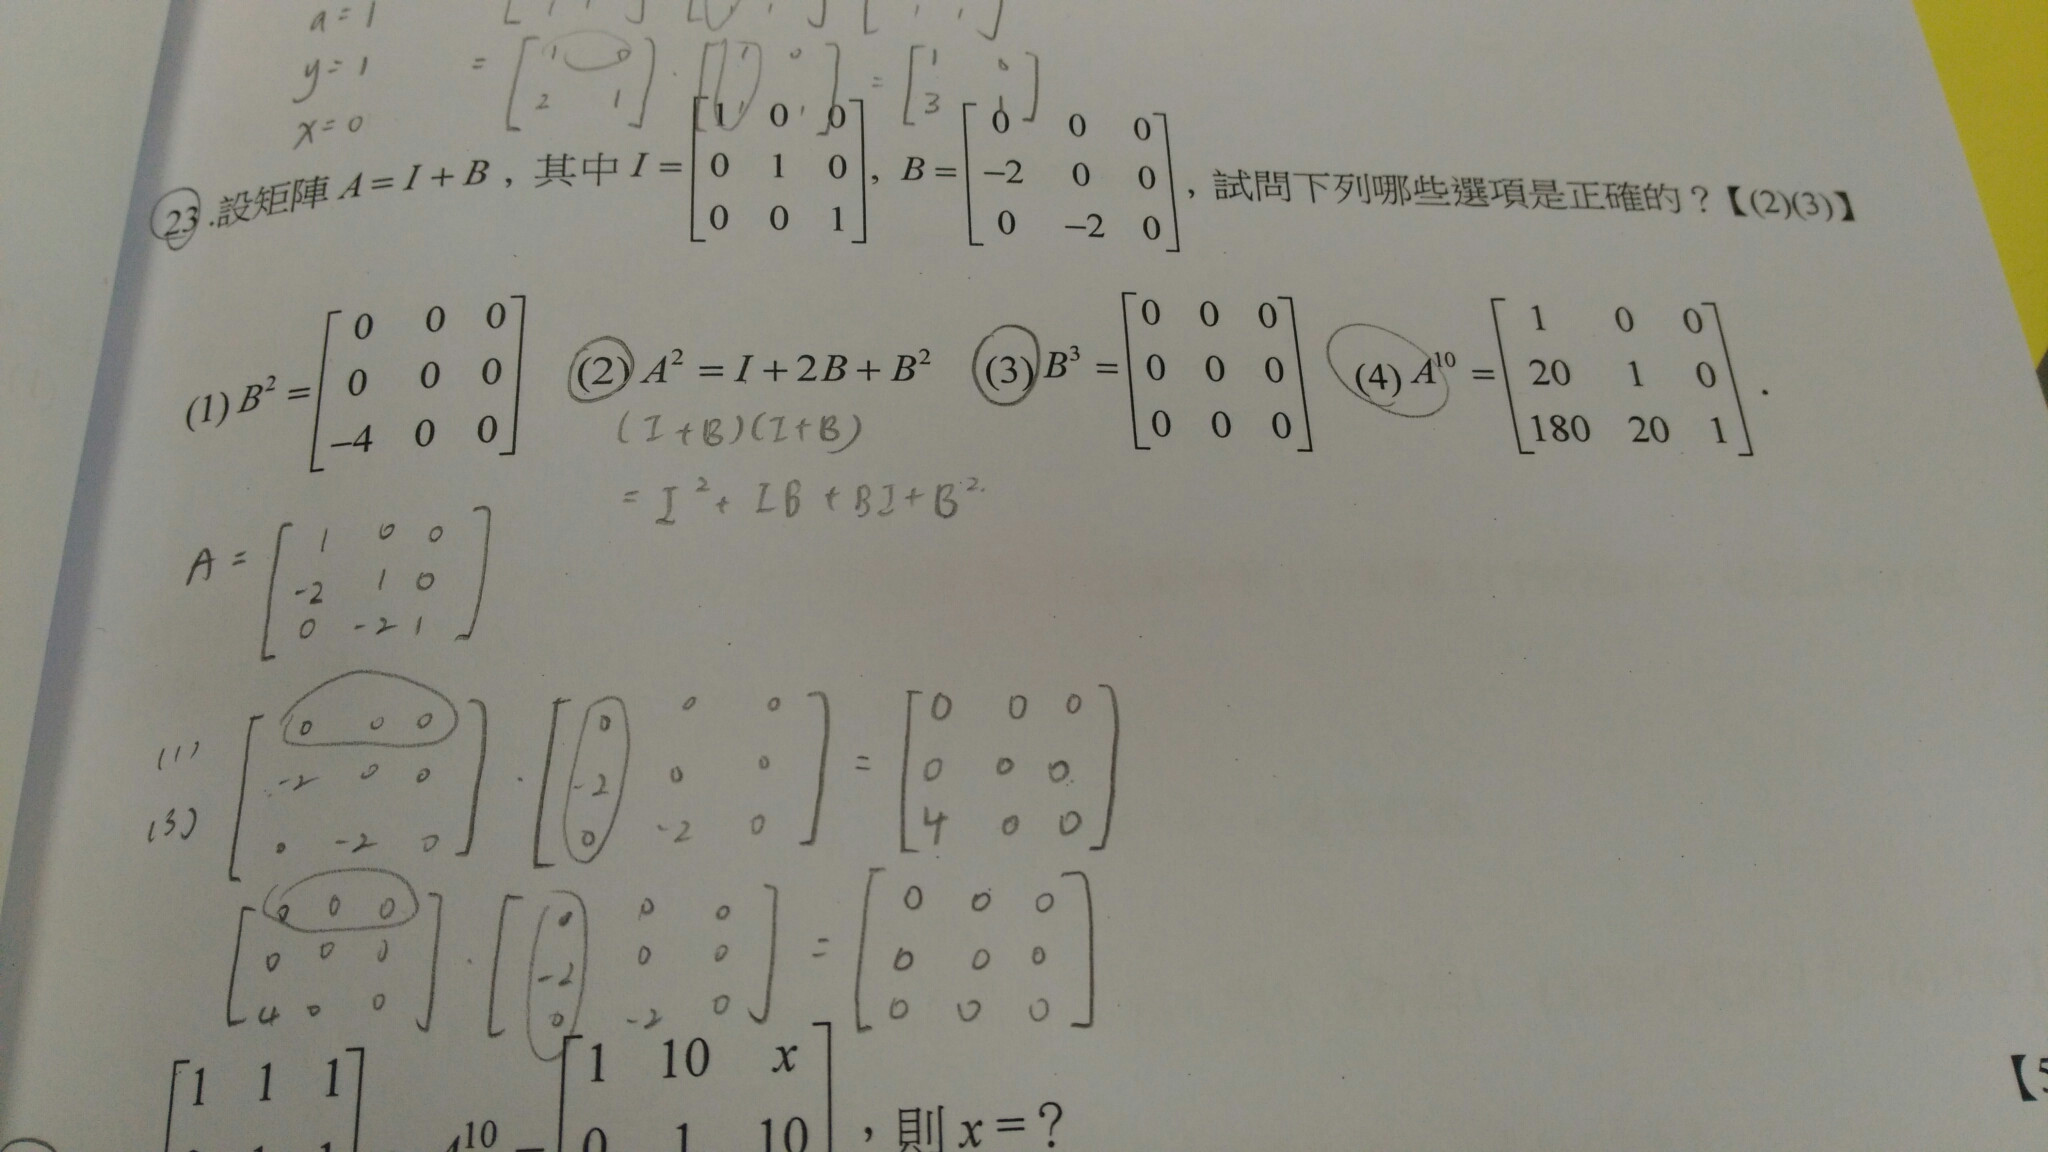 a = 1
y = 1 = [1 0 2 1] · [1 0 1 1] = [1 0 3 1]
x = 0
23.設矩陣 A = I + B，其中 I = [1 0 0 0 1 0 0 0 1], B = [0 0 0 −2 0 0 0 −2 0]，試問下列哪些選項是正確的？【(2)(3)】
(1) B² = [0 0 0 0 0 0 −4 0 0] (2) A² = I + 2B + B² (3) B³ = [0 0 0 0 0 0 0 0 0] (4) A¹⁰ = [1 0 0 20 1 0 180 20 1].
(I + B)(I + B)
= I² + IB + BI + B²
A = [1 0 0 -2 1 0 0 -2 1]
(1) [0 0 0 -2 0 0 0 -2 0] · [0 0 0 -2 0 0 0 -2 0] = [0 0 0 0 0 0 4 0 0]
(3)
[0 0 0 0 0 0 4 0 0] · [0 0 0 -2 0 0 0 -2 0] = [0 0 0 0 0 0 0 0 0]
[1 1 1
10 = [1 10 x 0 1 10]，則 x = ？
【5